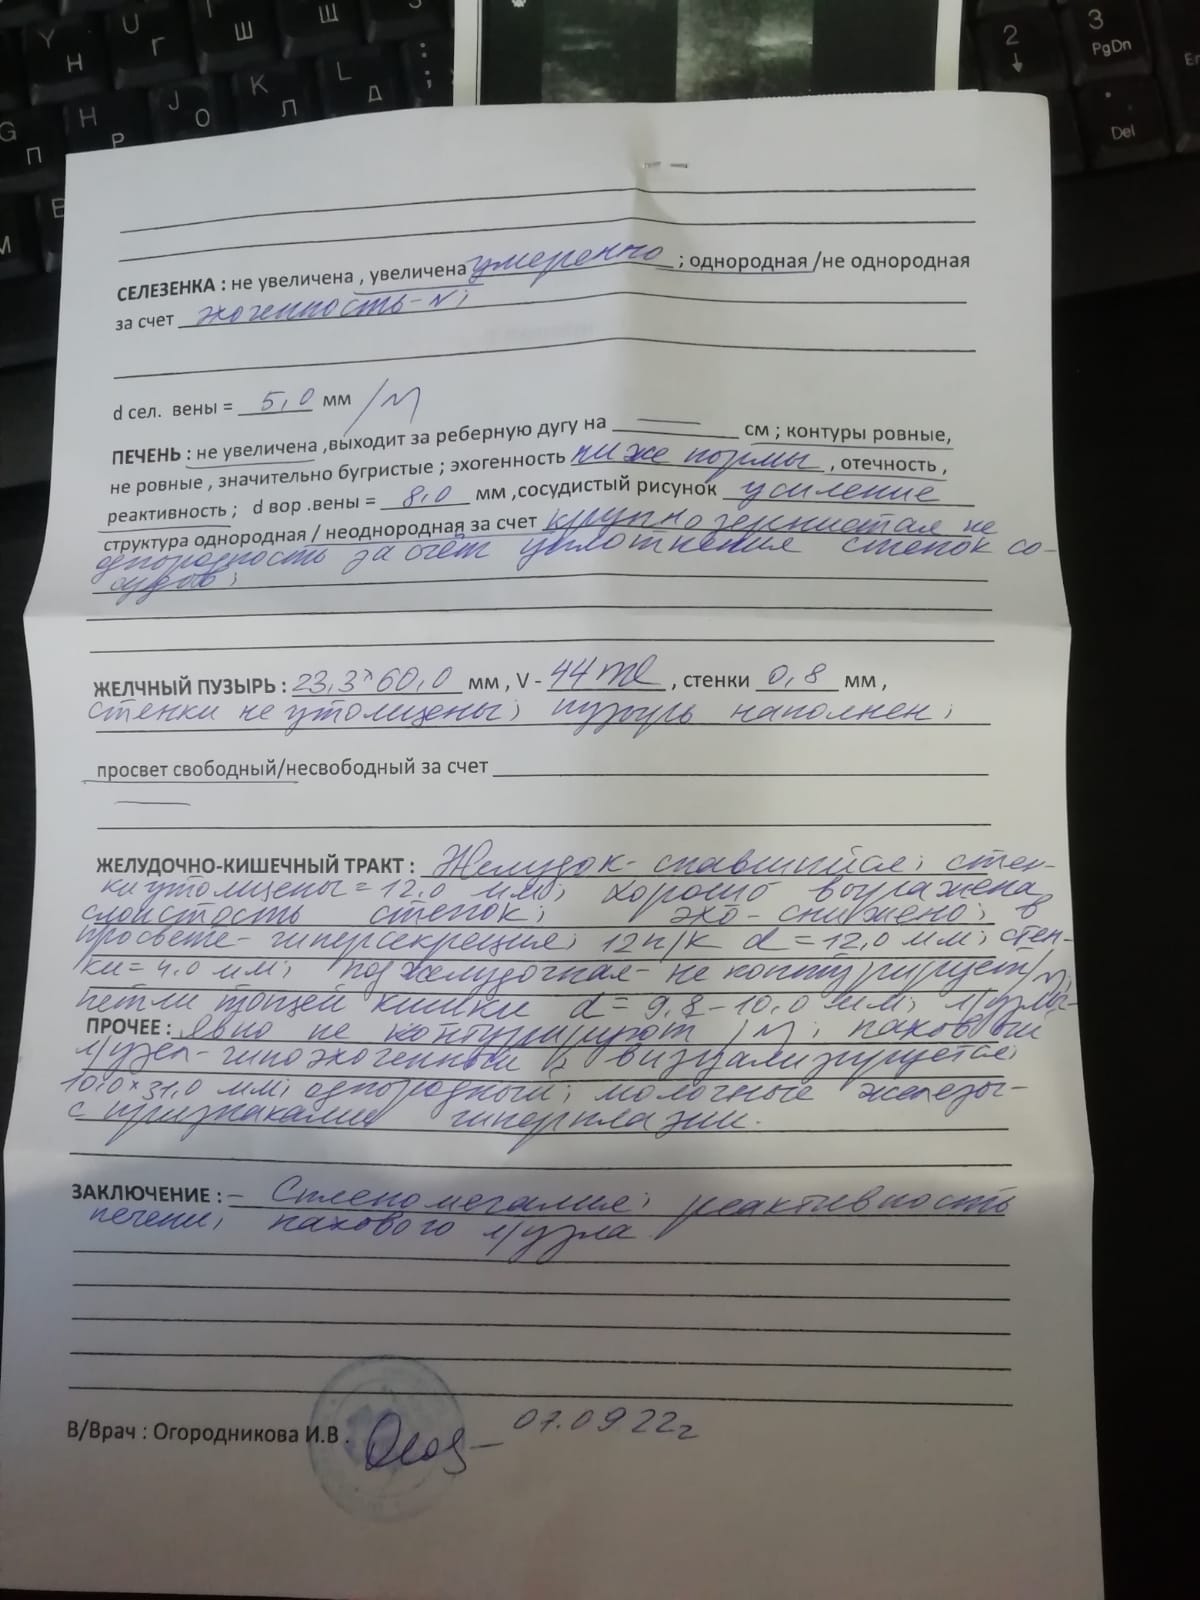 Y Н
U Г
Ш
Щ
З
G П
H Р
J О
K Л
L Д
: ;
В
М
2 ↓
3 PgDn
. Del
СЕЛЕЗЕНКА : не увеличена , увеличена умеренно ; однородная /не однородная
за счет эхогенность - N;
d сел. вены = 5,0 мм /N
ПЕЧЕНЬ : не увеличена ,выходит за реберную дугу на — см ; контуры ровные,
не ровные , значительно бугристые ; эхогенность ниже нормы , отечность ,
реактивность ; d вор .вены = 8,0 мм ,сосудистый рисунок усиление
структура однородная / неоднородная за счет крупнозернистая не
однородность за счёт уплотнения стенок со-
судов;
ЖЕЛЧНЫЙ ПУЗЫРЬ : 23,3*60,0 мм , V - 44 ml , стенки 0,8 мм ,
стенки не утолщены; пузырь наполнен;
просвет свободный/несвободный за счет
—
ЖЕЛУДОЧНО-КИШЕЧНЫЙ ТРАКТ : Желудок - спавшийся; стен-
ки утолщены = 12,0 мм; хорошо выражена
слоистость стенок; эхо - снижено; в
просвете - гиперсекреция; 12п/к d = 12,0 мм; стен-
ки = 4,0 мм; поджелудочная - не контурирует/N;
петли тощей кишки d = 9,8 - 10,0 мм; л/узлы-
ПРОЧЕЕ : явно не контурируют /N; паховый
л/узел - гипоэхогенный визуализируется;
10,0 × 31,0 мм; однородный; молочные железы -
с признаками гиперплазии.
ЗАКЛЮЧЕНИЕ : - Спленомегалия; реактивность
печени; пахового л/узла.
В/Врач : Огородникова И.В .
07.09 22г